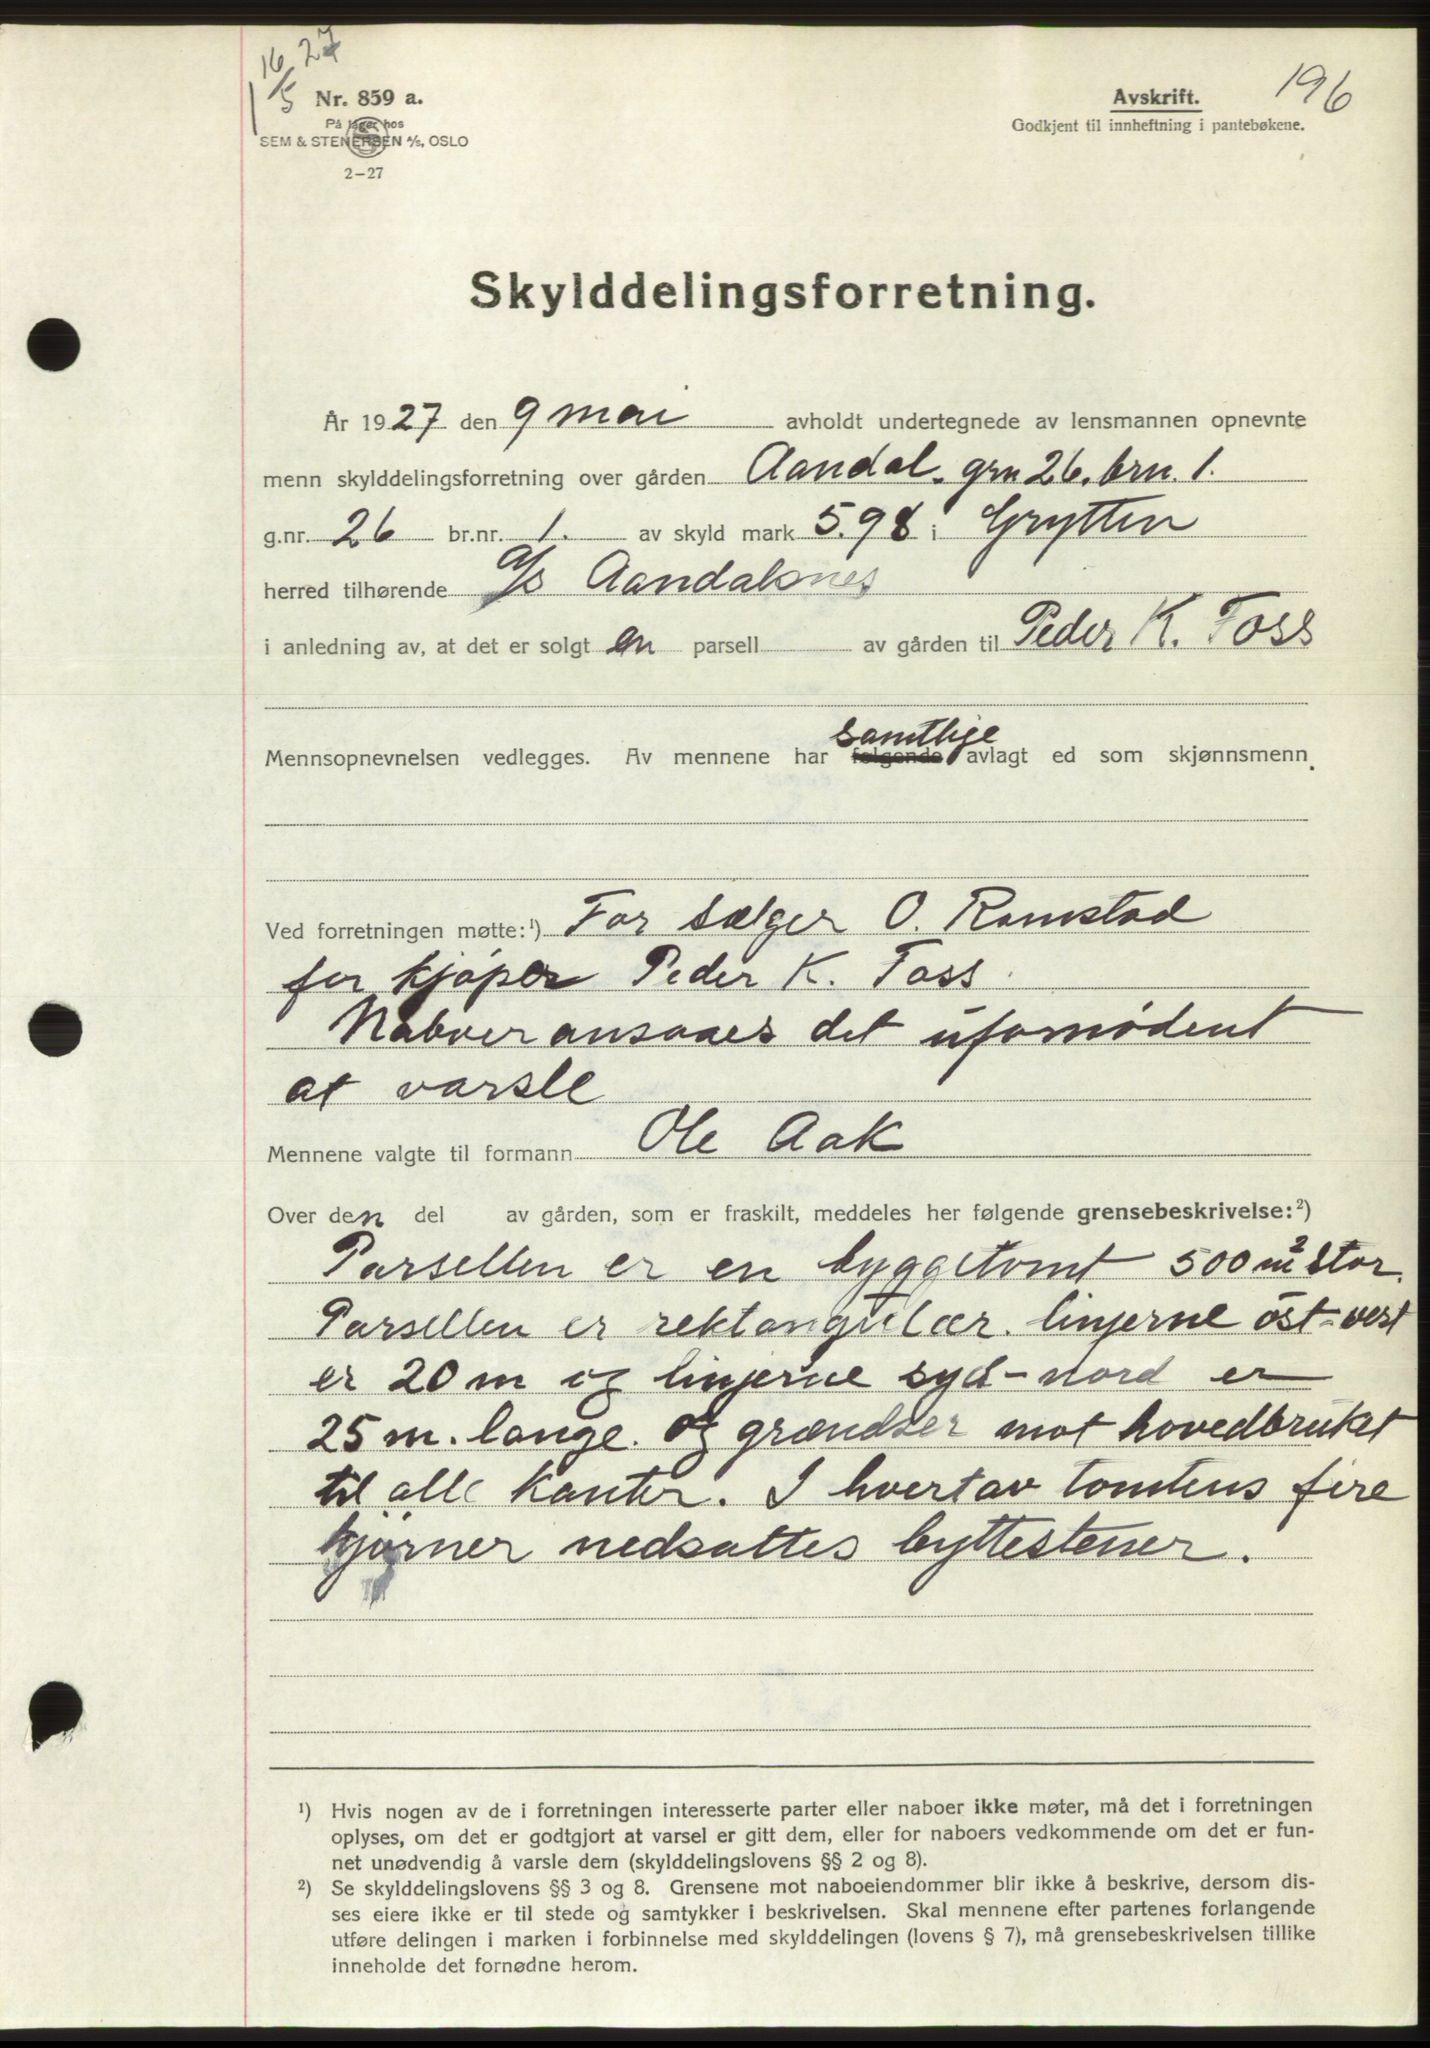 16/5 27
Nr. 859 a.
På lager hos
SEM & STENERSEN A/S, OSLO
2-27
Avskrift.
Godkjent til innheftning i pantebøkene.
196
Skylddelingsforretning.
År 1927 den 9 mai avholdt undertegnede av lensmannen opnevnte
menn skylddelingsforretning over gården Aandal. grn 26. brn. 1.
g.nr. 26 br.nr. 1. av skyld mark 5.98 i Grytten
herred tilhørende A/S Aandalsnes
i anledning av, at det er solgt en parsell av gården til Peder K. Foss
Mennsopnevnelsen vedlegges. Av mennene har følgende samtlige avlagt ed som skjønnsmenn.
Ved forretningen møtte:¹) For sælger O. Ramstad
for kjøper Peder K. Foss
Naboer ansaaes det ufornødent
at varsle
Mennene valgte til formann Ole Aak
Over den del av gården, som er fraskilt, meddeles her følgende grensebeskrivelse:²)
Parsellen er en byggetomt 500 m² stor.
Parsellen er rektangulær. linjerne øst-vest
er 20 m og linjerne syd-nord er
25 m. lange. og grændser mot hovedbruket
til alle kanter. I hvert av tomtens fire
hjørner nedsattes byttestener.
¹) Hvis nogen av de i forretningen interesserte parter eller naboer ikke møter, må det i forretningen
oplyses, om det er godtgjort at varsel er gitt dem, eller for naboers vedkommende om det er fun-
net unødvendig å varsle dem (skylddelingslovens §§ 2 og 8).
²) Se skylddelingslovens §§ 3 og 8. Grensene mot naboeiendommer blir ikke å beskrive, dersom dis-
ses eiere ikke er til stede og samtykker i beskrivelsen. Skal mennene efter partenes forlangende
utføre delingen i marken i forbinnelse med skylddelingen (lovens § 7), må grensebeskrivelsen tillike
inneholde det fornødne herom.